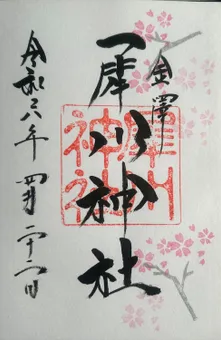 金澤
犀川神社
令和六年四月二十一日
犀川神社